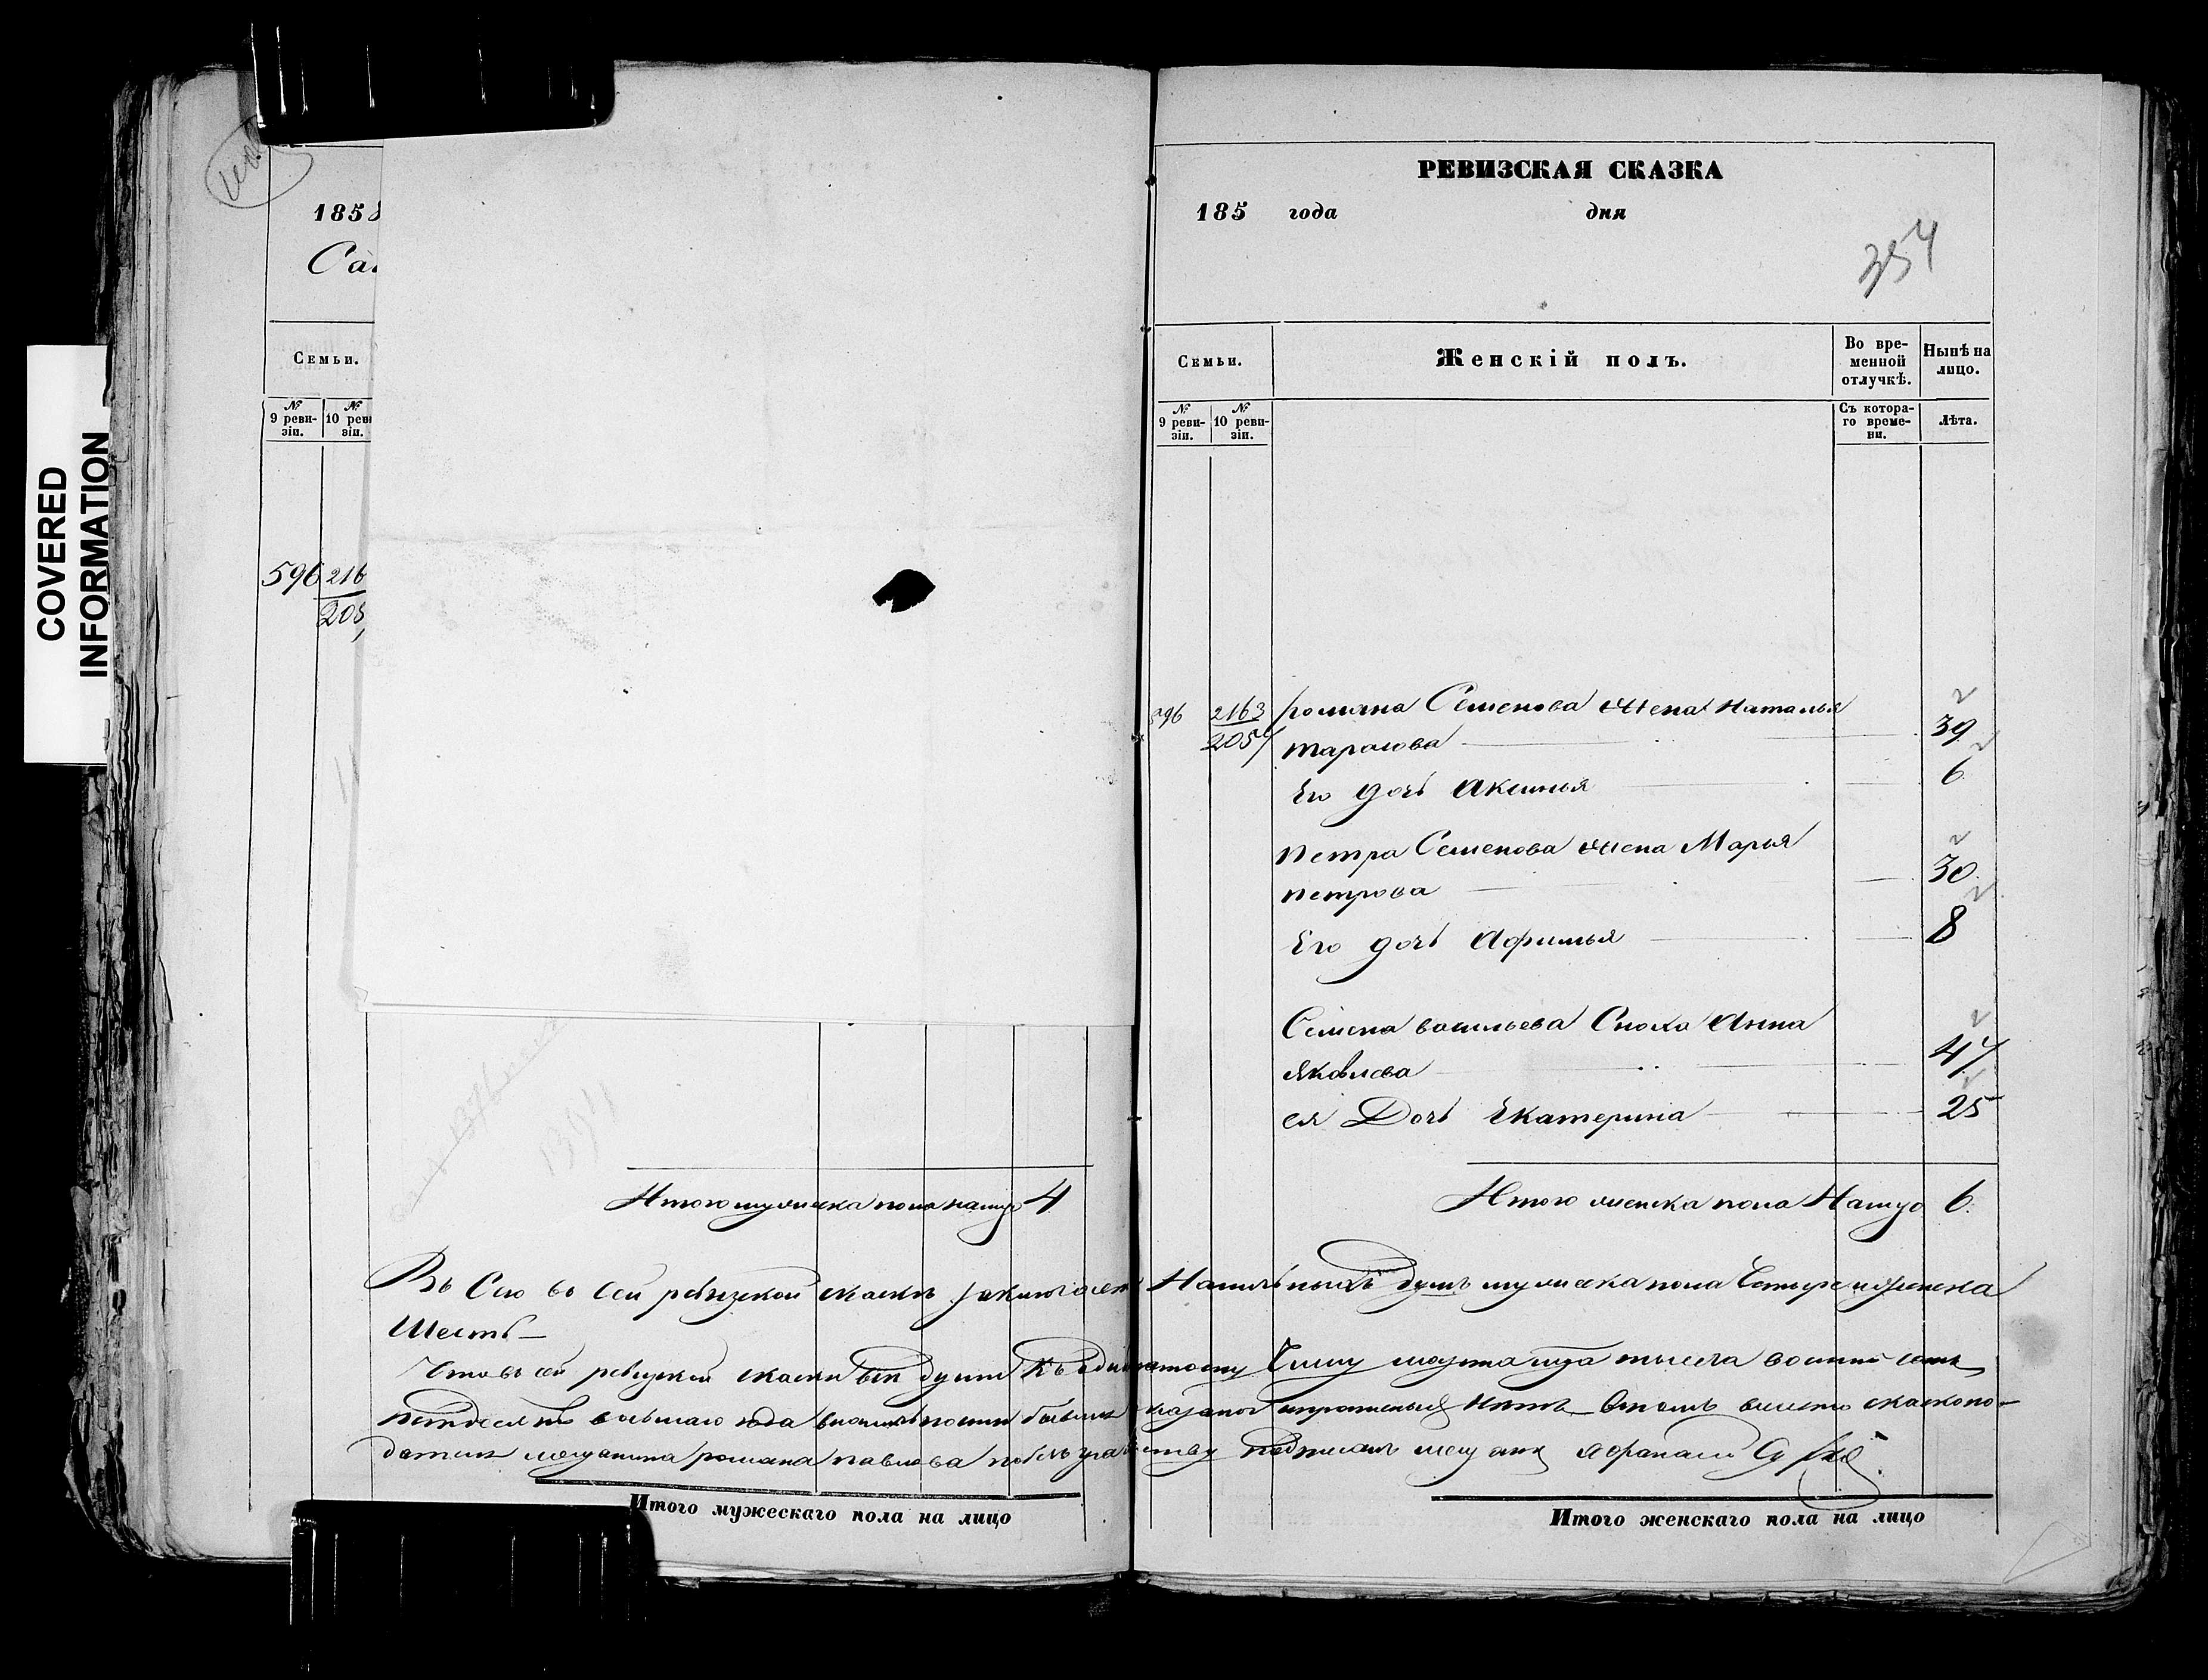 COVERED
INFORMATION
1858
Са
Семьи.
№ 9 ревизіи.
№ 10 реви зіи.
596 216
205
Итого мужеска пола налицо 4
РЕВИЗСКАЯ СКАЗКА
185 года дня
354
Семьи.
Женскій полъ.
Во временной отлучкѣ.
Нынѣ на лицо.
№ 9 ревизіи.
№ 10 ревизіи.
Съ котораго времени.
Лѣта.
596 2163 романа Семенова жена Наталья
2057 тарасова 39
Его дочь Аксинья 6
Петра Семенова жена Марья
петрова 30
Его дочь Афимья 8
Семена васильева Сноха Анна
Яковлева 47
ея Дочь Екатерина 25
Итого женска пола Налицо 6
Въ Сей ревизской скаски заключает Наличныхъ душъ мужеска пола Четыре и женска
Шесть
Что въ сей ревизской скаски все души Къ одинатому Числу марта тысеча восимъ сотъ
петдесятъ восьмаго года нѣтъ вместо скаскопо-
дателя мещанина романа павлова подписалъ
Итого мужескаго пола на лицо
Итого женскаго пола на лицо